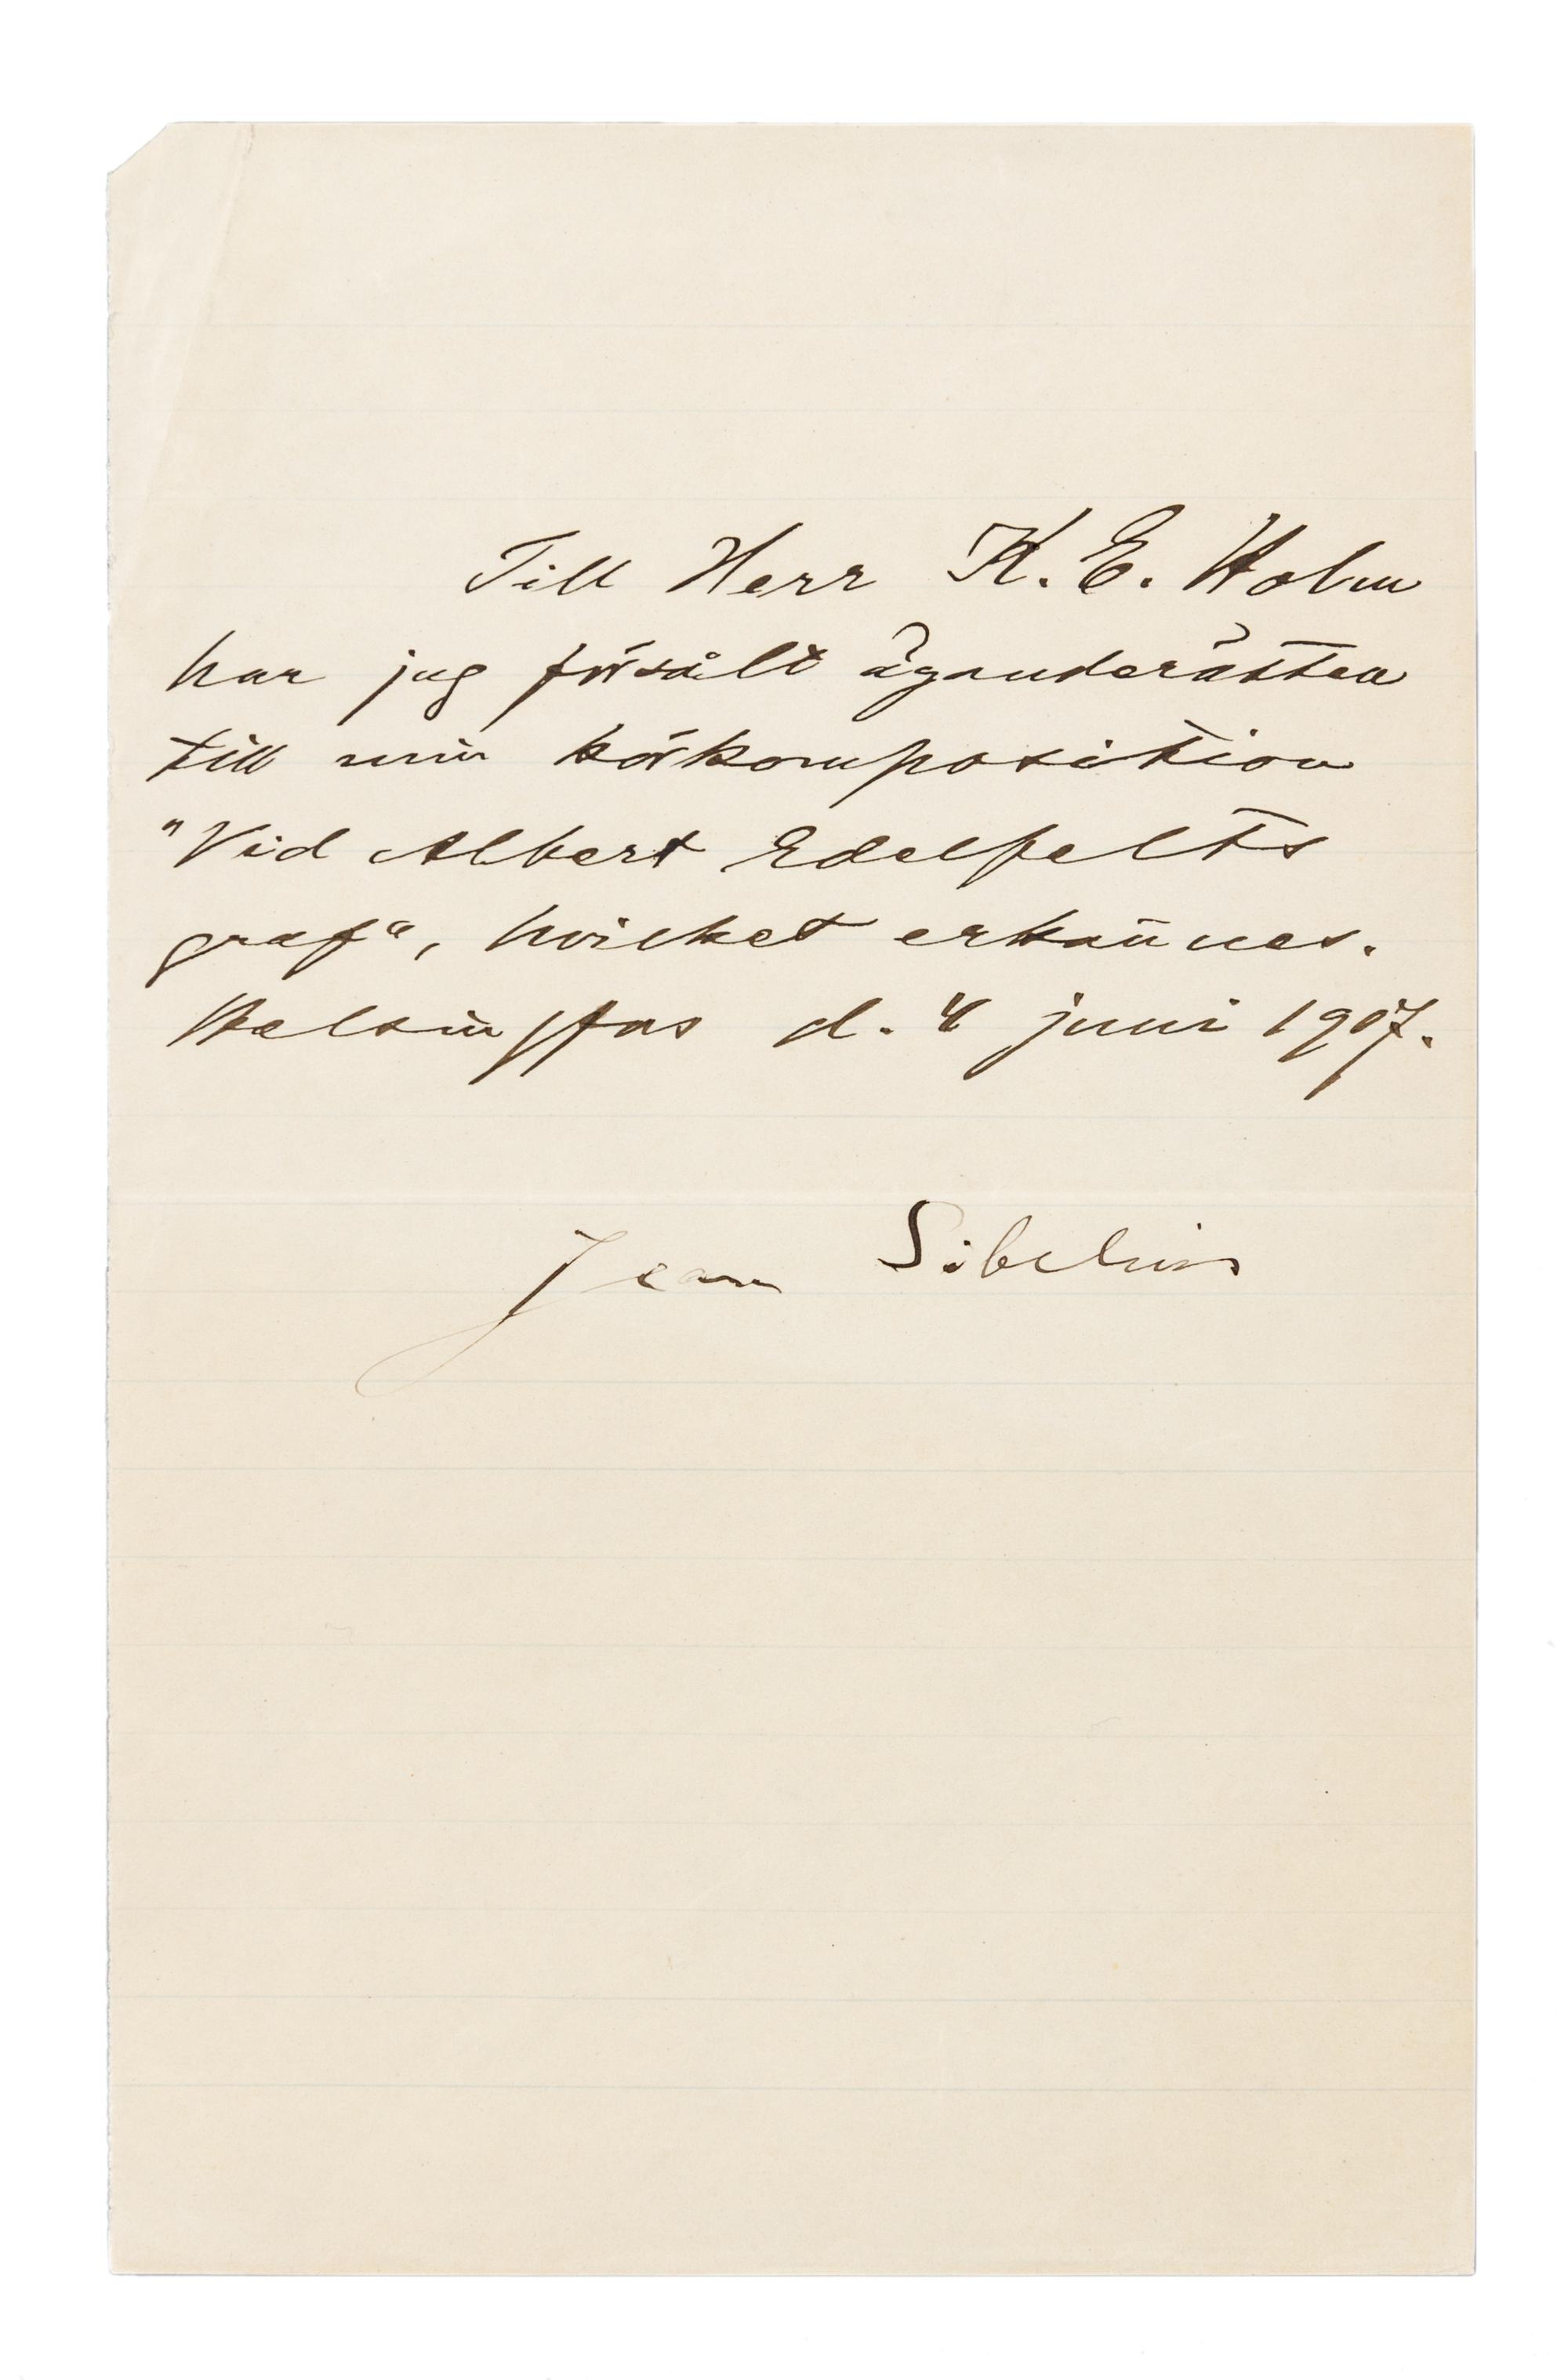 Till Herr K. E. Holm
har jag försålt äganderätten
till min körkomposition
"Vid Albert Edelfelts
graf", hvilket erkännes.
Helsingfors d. 4 juni 1907.
Jean Sibelius